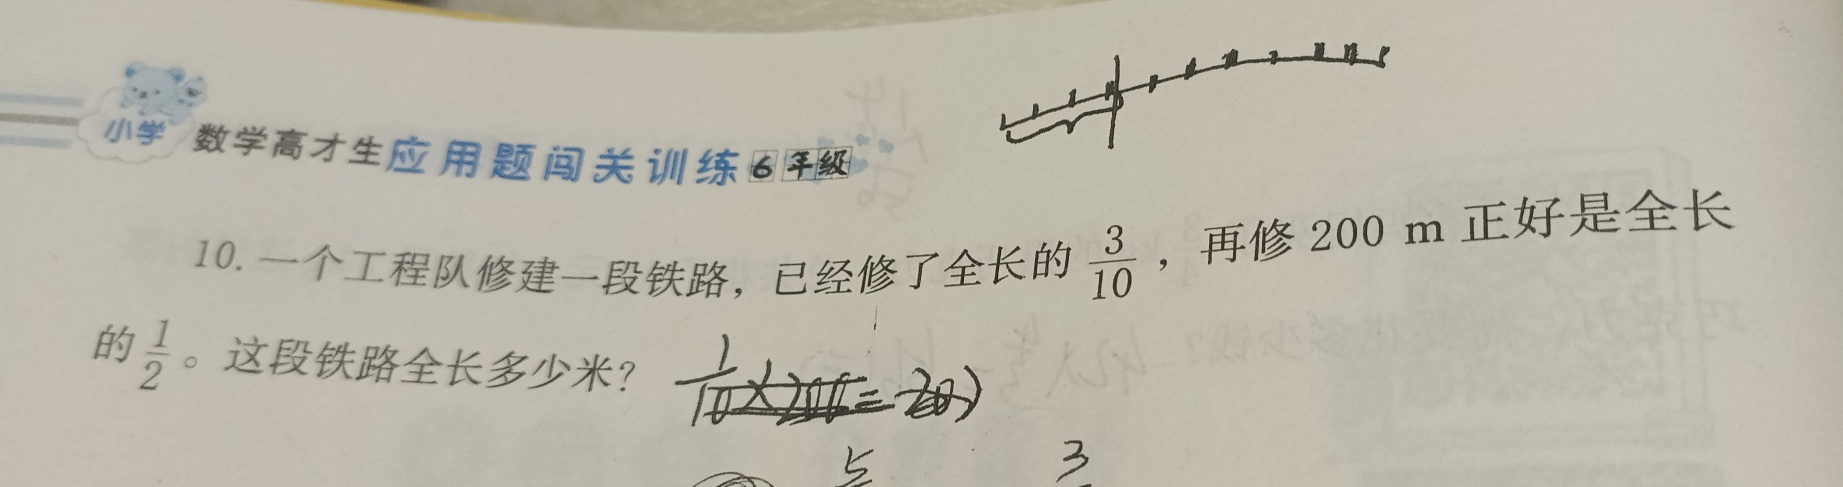 小学 数学高才生应用题闯关训练6年级
10. 一个工程队修建一段铁路，已经修了全长的 3/10，再修 200 m 正好是全长
的 1/2。这段铁路全长多少米？
5 3